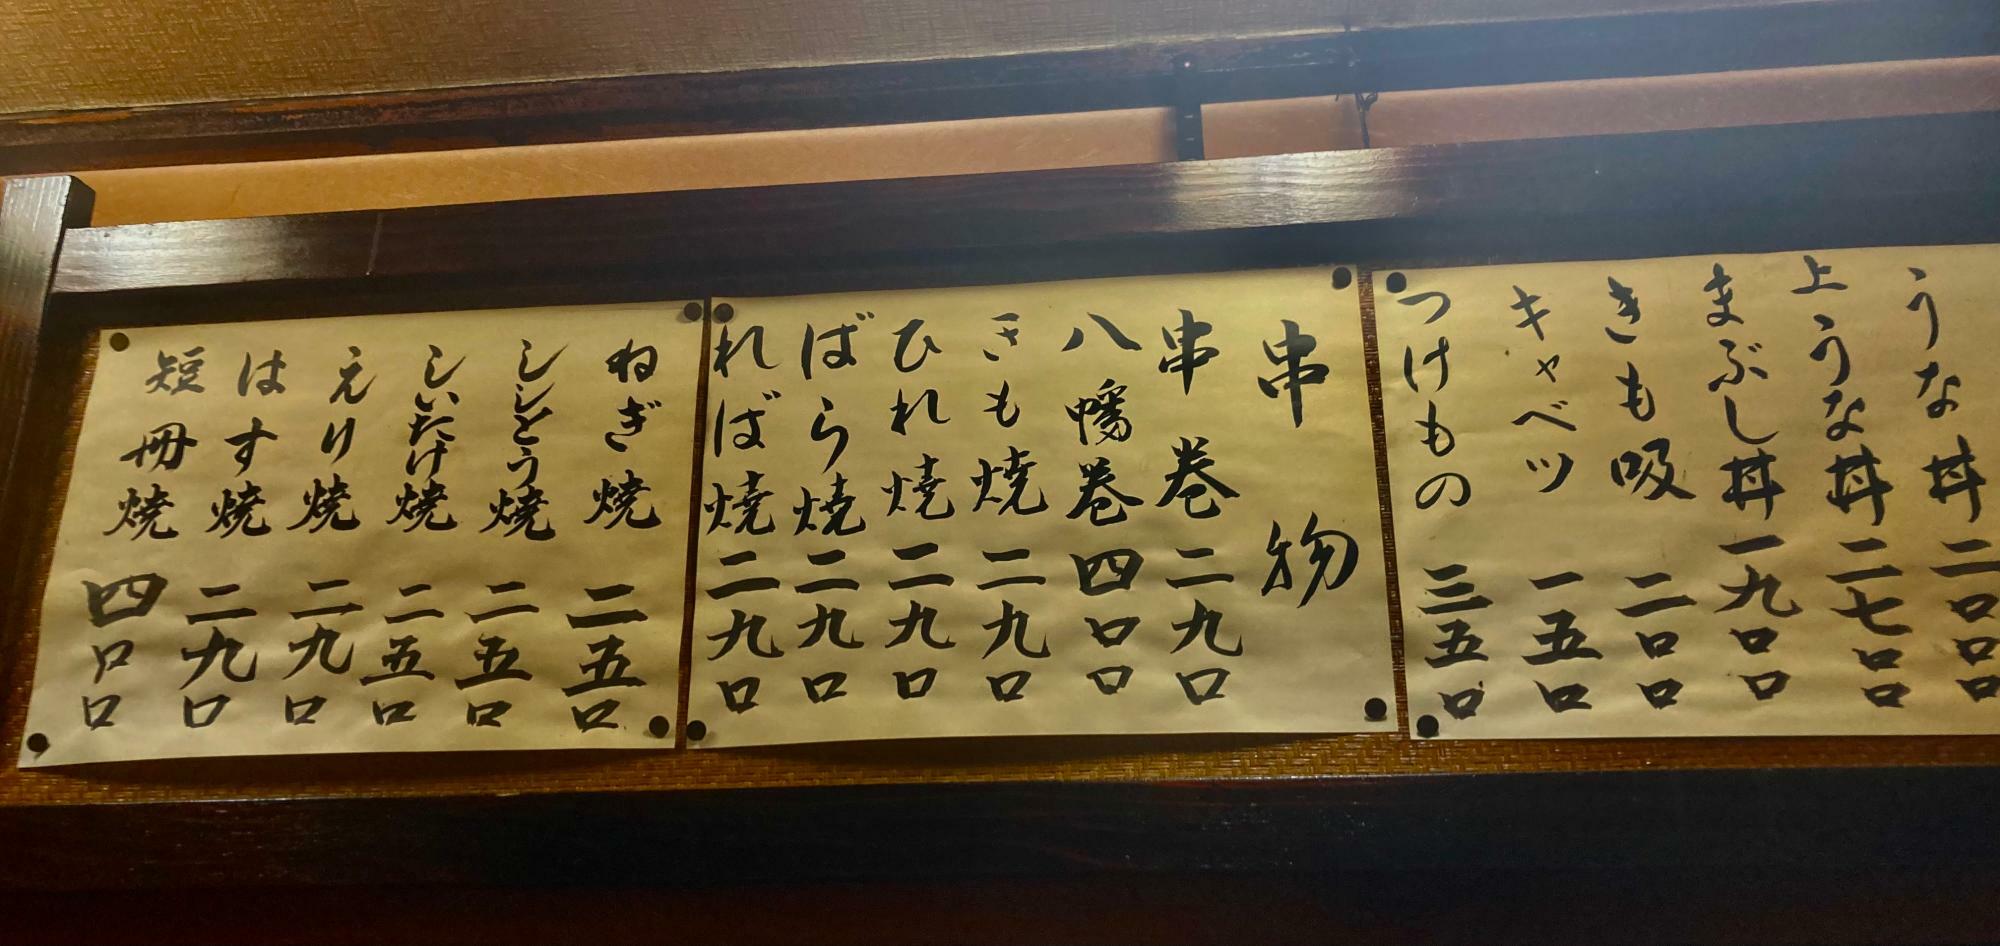 うな丼 二〇〇〇
上うな丼 二七〇〇
まぶし丼 一九〇〇
きも吸 二〇〇
キャベツ 一五〇
つけもの 三五〇
串物
串巻 二九〇
八幡巻 四〇〇
きも焼 二九〇
ひれ焼 二九〇
ばら焼 二九〇
ればば焼 二九〇
ねぎ焼 二五〇
ししとう焼 二五〇
しいたけ焼 二五〇
えり焼 二九〇
はす焼 二九〇
短冊焼 四〇〇